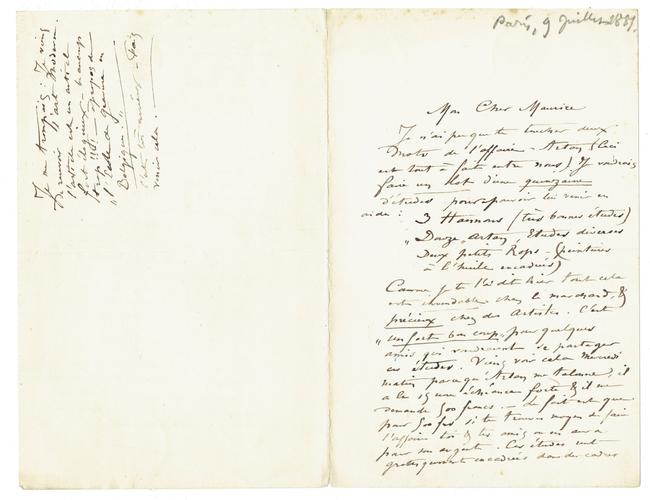 Paris, 9 Juillet 1887.
Mon Cher Maurice
Je n'ai pu que te toucher deux
mots de l'affaire - Artan (Ceci
est tout à fait entre nous) Je voudrais
faire un lot d'une quinzaine
d'études pour pouvoir lui venir en
aide :
3 Hannons (très bonnes études)
" Douze Artan, Etudes diverses
Deux petits Rops - (peintures
à l'huile encadrées)
Comme je te l'ai dit hier tout cela
est invendable chez le marchand, &
précieux chez des Artistes. C'est
" un fort bon coup " pour quelques
amis qui voudraient se partager
ces études. Viens voir cela Mercredi
matin parce qu'Artan me talonne, il
a le 15 une échéance forte & il me
demande 500 francs. - le fait est que
pour 500 frs si tu trouves moyen de faire
l'affaire toi & tes amis on en aura
pour son argent. Ces études sont
presque encadrées dans des cadres
Je me trompais : Je viens
de revoir l'art Moderne
l'article est un article
fort élogieux - beaucoup
trop !! à propos de
"
Belgique. "